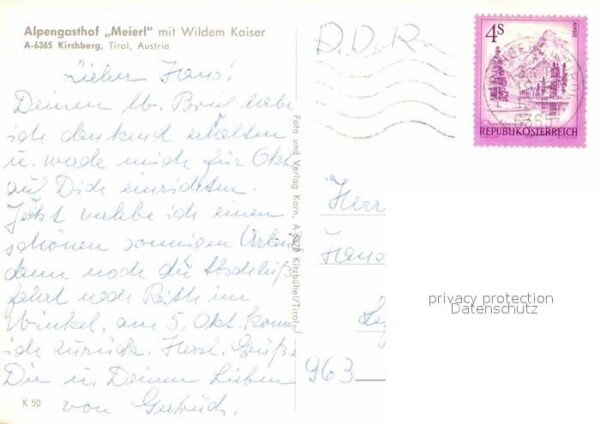 Alpengasthof „Meierl" mit Wildem Kaiser
A-6365 Kirchberg, Tirol, Austria
Lieber Hans!
Deinen lb. Brief habe
ich dankend erhalten
u. werde mich für Okt.
auf Dich einrichten.
Jetzt verlebe ich einen
schönen sonnigen Urlaub
dann noch die
fahrt nach Reith im
Winkel, am 5. Okt. komme
ich zurück. Herzl. Grüße
Dir u. Deinen Lieben
von Gertrud.
K 50
Foto und Verlag Korn, A 6370 Kitzbühel/Tirol
D.D.R.
4 S
REPUBLIK ÖSTERREICH
6365
Herr
Hans
963
privacy protection
Datenschutz